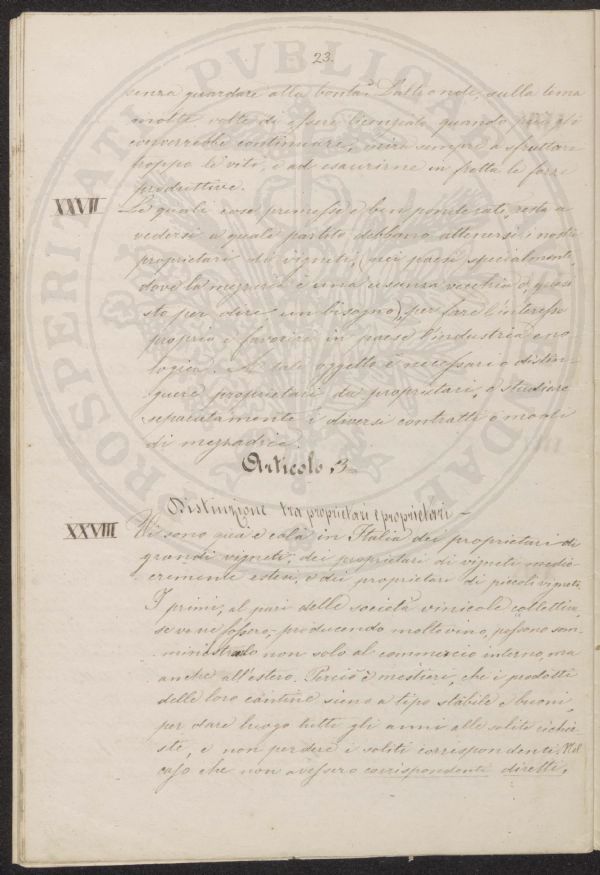 23.
senza guardare alla bontà. D'altronde, sulla tema
molte volte di essere licenziato quando più gli
converrebbe continuare, mira sempre a sfruttare
troppo le viti, e ad esaurirne in fretta le forze
produttive.
XXVII Le quali cose premesse e ben ponderate, resta a
vedersi a quale partito debbano attenersi i nostri
proprietari di vigneti, (nei paesi specialmente
dove la mezzeria è una usanza vecchia e, quasi
sto per dire un bisogno), per fare l'interesse
proprio e favorire in paese l'industria eno
logica. A tale oggetto è necessario distin-
guere proprietari da proprietari, e studiare
separatamente i diversi contratti o modi
di mezzadria.
Articolo 3
Distinzione tra proprietari e proprietari —
XXVIII Vi sono qua e colà in Italia dei proprietari di
grandi vigneti; dei proprietari di vigneti medio-
cremente estesi, e dei proprietari di piccoli vigneti.
I primi, al pari delle società vinicole collettive,
se ve ne fossero, producendo molto vino, possono som-
ministrarlo non solo al commercio interno, ma
anche all'estero. Perciò è mestieri, che i prodotti
delle loro cantine sieno a tipo stabile e buoni,
per dare luogo tutti gli anni alle solite richie-
ste, e non perdere i soliti corrispondenti. Nel
caso che non avessero corrispondenti diretti,
PROSPERITATI PVBLICAE